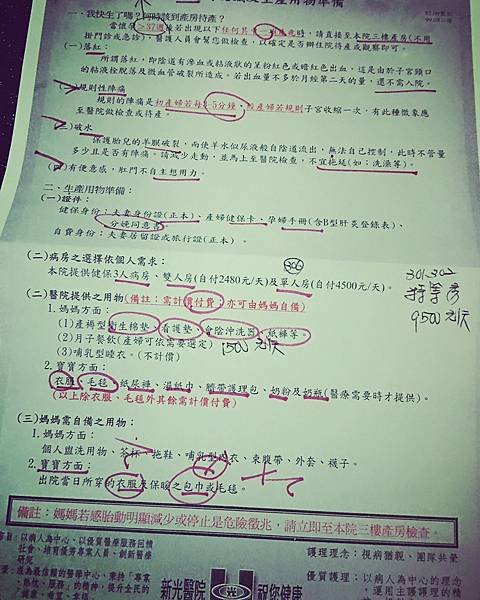 及生產用物準備
一、我快生了嗎？何時該到產房待產？
當懷孕>37週後若出現以下任何其中一項徵兆時，請直接至本院三樓產房(不用
掛門診或急診)，醫護人員會幫您做檢查，以確定是否辦住院待產或觀察即可。
(一)落紅：
所謂落紅，即陰道有滲血或粘液狀的呈粉紅色或暗紅色出血，這是由於子宮頸口
的粘液栓脫落及微血管破裂所造成。若出血量不多於月經第二天的量，還不需入院。
(二)規則性陣痛
規則的陣痛是初產婦若每5分鐘，經產婦若規則子宮收縮一次，有此種徵象應
至醫院做檢查或待產。
(三)破水
保護胎兒的羊膜破裂，而使羊水似尿液般自陰道流出，無法自己控制，此時不管量
多少且是否有陣痛。請減少走動，並馬上至醫院檢查，不宜拖延(如：洗澡等)。
(四)有便意感，肛門不自主想用力。
二、生產用物準備：
(一)證件：
健保身份：夫妻身份證(正本)、產婦健保卡、孕婦手冊(含B型肝炎登錄表)、
分娩同意書
自費身份：夫妻居留證或旅行證(正本)。
(二)病房之選擇依個人需求：
本院提供健保3人病房、雙人房(自付2480元/天)及單人房(自付4500元/天)。
301-302
9500元/天
(二)醫院提供之用物(備註：需計價付費；亦可由媽媽自備)
1.媽媽方面：
(1)產褥型衛生棉墊、看護墊、會陰沖洗器、紙褲等。
(2)月子餐飲(產婦可依需要選定) 1500元/天
(3)哺乳型睡衣。(不計價)
2.寶寶方面：
衣服、毛毯、紙尿褲、濕紙巾、臍帶護理包、奶粉及奶瓶(醫療需要時才提供)。
(以上除衣服、毛毯外其餘需計價付費)
(三)媽媽需自備之用物：
1.媽媽方面：
個人盥洗用物、茶杯、拖鞋、哺乳型內衣、束腹帶、外套、襪子。
2.寶寶方面：
出院當日所穿的衣服及保暖之包巾或毛毯。
備註：媽媽若感胎動明顯減少或停止是危險徵兆，請立即至本院三樓產房檢查。
旨：以病人為中心，以優質醫療服務回饋
社會、培育優秀專業人員、創新醫療
研究
護理理念：視病猶親、團隊共榮
景：成為最信賴的醫學中心，秉持「專業
、熱忱、服務」的精神，提升全民的
新光醫院
祝您健康
優質護理：以病人為中心的理念
，運用主護護理的精